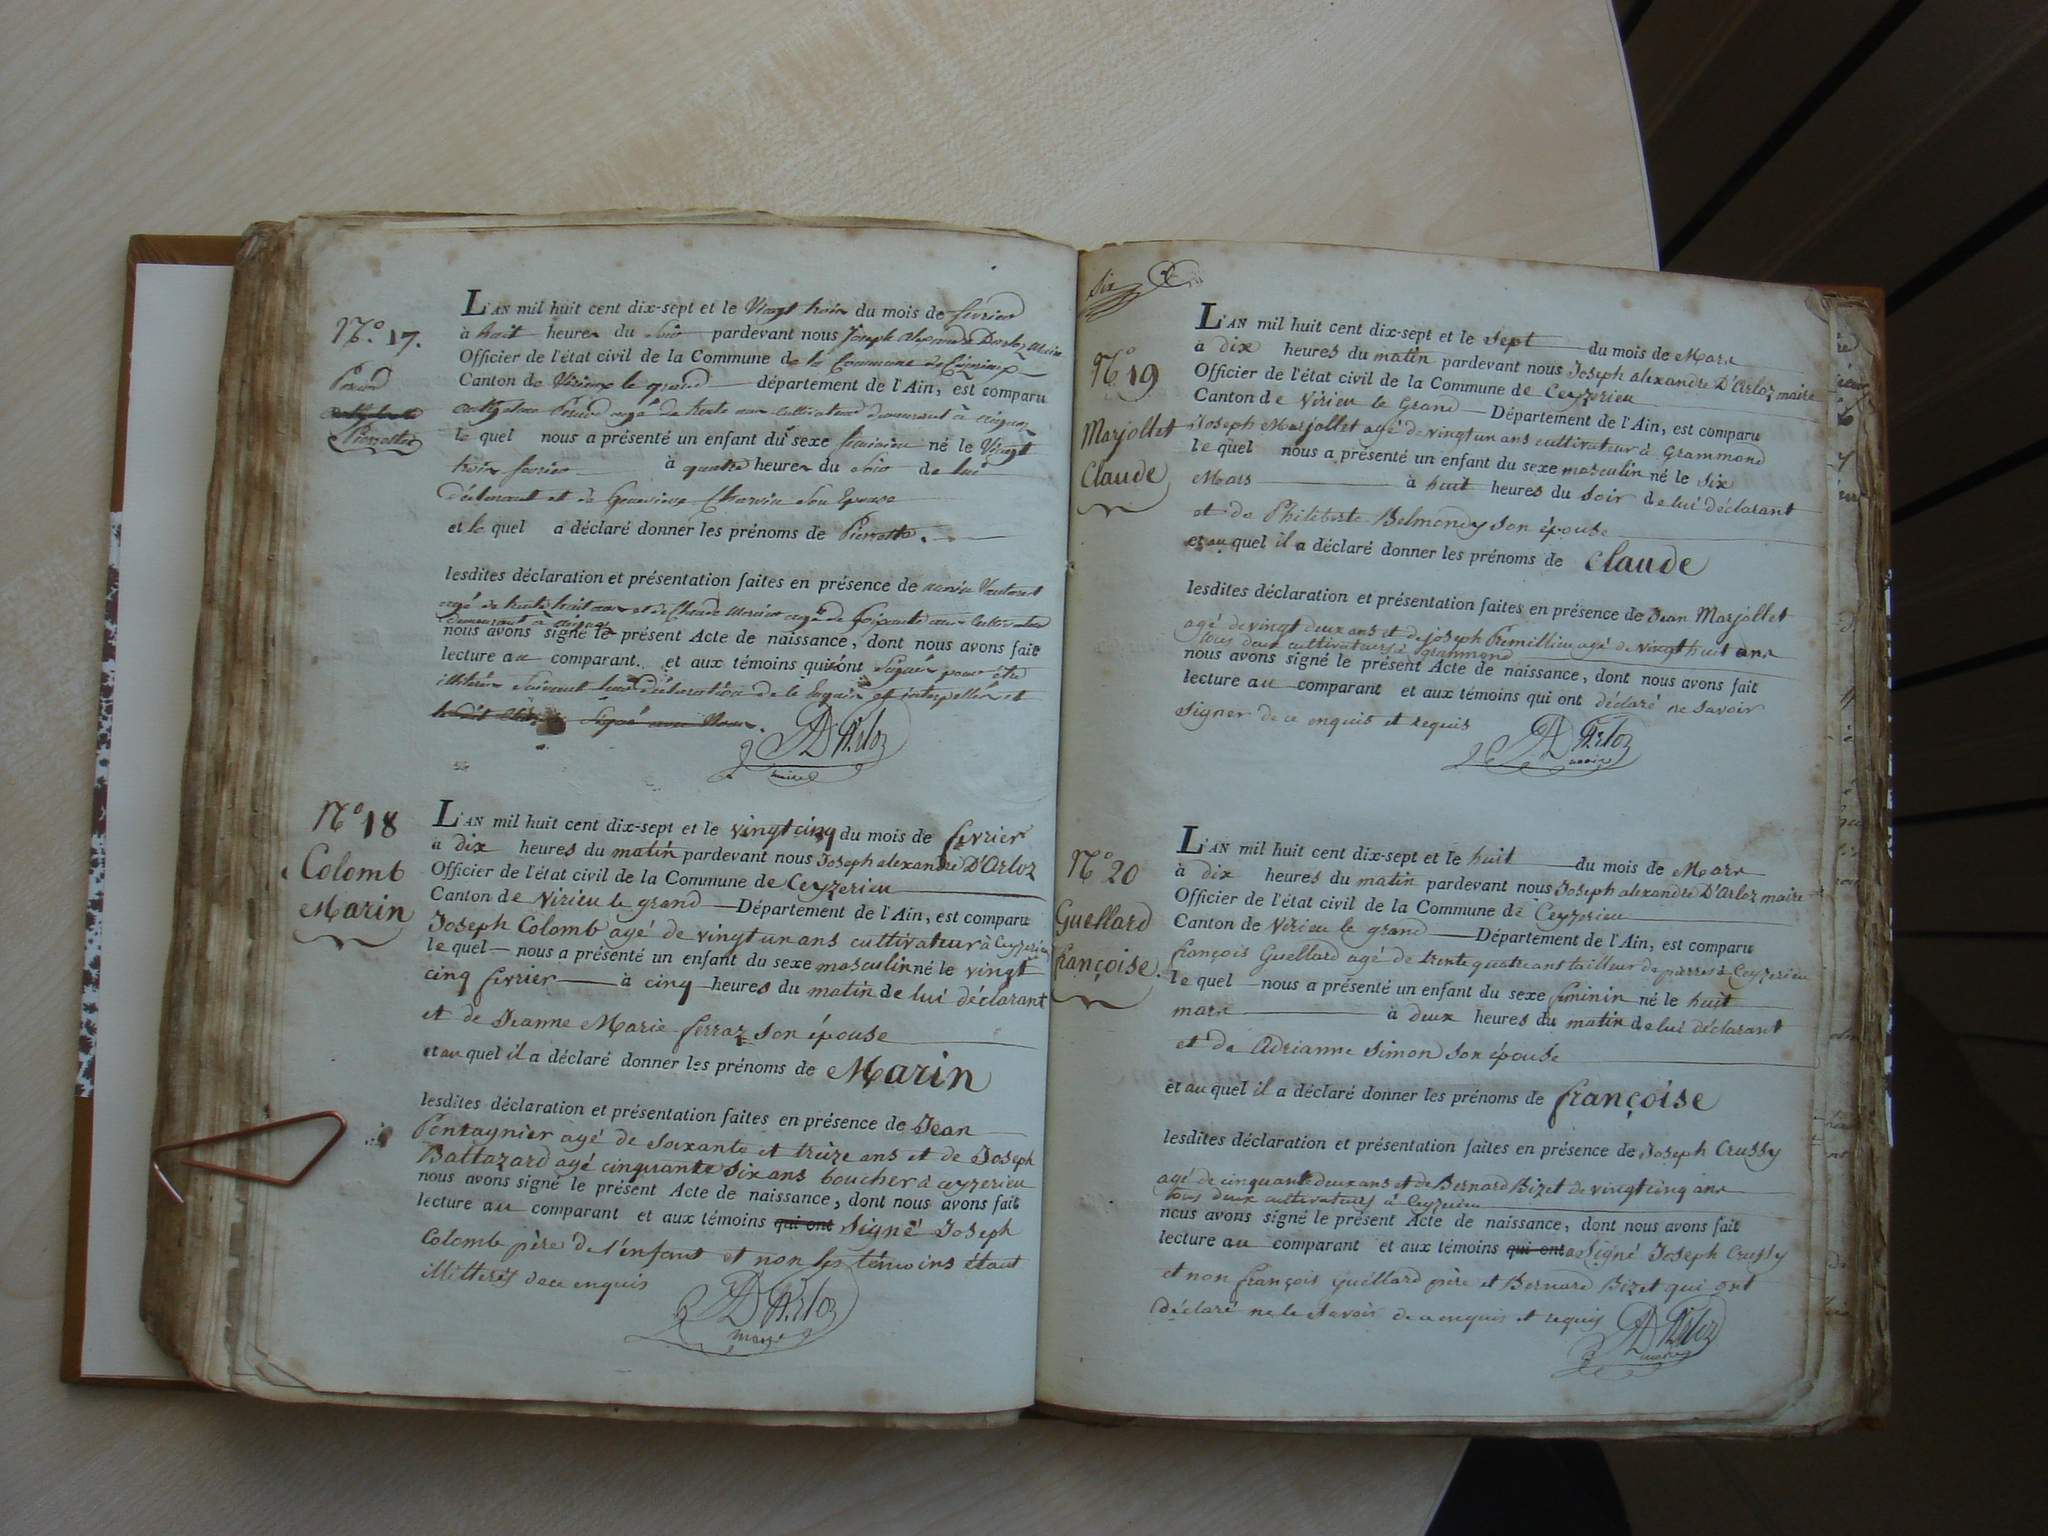 N.° 17.
Pierrette
L'AN mil huit cent dix-sept et le Vingt trois du mois de fevrier
à huit heures du soir pardevant nous Joseph Alexandre Darloz Maire
Officier de l'état civil de la Commune de la Commune de
Canton de Virieux le grand département de l'Ain, est comparu
agé de trente ans cultivateur demeurant à
le quel nous a présenté un enfant du sexe feminin né le Vingt
trois fevrier à quatre heures du soir de lui
déclarant et de Genevieve Charvin son Epouse
et le quel a déclaré donner les prénoms de Pierrette.
lesdites déclaration et présentation faites en présence de
agé de trente huit ans et de Claude agé de soixante ans cultivateurs
demeurant à
nous avons signé le présent Acte de naissance, dont nous avons fait
lecture au comparant et aux témoins qui ont pour être
illiterés suivant leur déclaration de le enquis et interpellés et
D'Arloz
maire
N° 18
Colomb
Marin
L'AN mil huit cent dix-sept et le vingt cinq du mois de fevrier
à dix heures du matin pardevant nous Joseph alexandre D'Arloz
Officier de l'état civil de la Commune de Ceyzerieu
Canton de Virieu le grand Département de l'Ain, est comparu
Joseph Colomb agé de vingt un ans cultivateur à Ceyzerieu
le quel nous a présenté un enfant du sexe masculin né le vingt
cinq fevrier à cinq heures du matin de lui déclarant
et de Jeanne Marie ferraz son épouse
et au quel il a déclaré donner les prénoms de Marin
lesdites déclaration et présentation faites en présence de Jean
Pontagnier agé de soixante et treize ans et de Joseph
Baltazard agé cinquante six ans boucher à ceyzerieu
nous avons signé le présent Acte de naissance, dont nous avons fait
lecture au comparant et aux témoins qui ont Signé Joseph
Colomb père de l'enfant et non les témoins étant
illitterés de ce enquis
D'Arloz
maire
Six
N° 19
Marjollet
Claude
L'AN mil huit cent dix-sept et le sept du mois de Mars
à dix heures du matin pardevant nous Joseph alexandre D'Arloz maire
Officier de l'état civil de la Commune de Ceyzerieu
Canton de Virieu le Grand Département de l'Ain, est comparu
Joseph Marjollet agé de vingt un ans cultivateur à Grammond
le quel nous a présenté un enfant du sexe masculin né le Six
Mars à huit heures du soir de lui déclarant
et de Philiberte Belmondy son épouse
et au quel il a déclaré donner les prénoms de Claude
lesdites déclaration et présentation faites en présence de Jean Marjollet
agé de vingt deux ans et de joseph Premillieu agé de vingt huit ans
tous deux cultivateurs à grammond
nous avons signé le présent Acte de naissance, dont nous avons fait
lecture au comparant et aux témoins qui ont déclaré ne savoir
signer de ce enquis et requis
D'Arloz
maire
N° 20
Guellard
françoise
L'AN mil huit cent dix-sept et le huit du mois de Mars
à dix heures du matin pardevant nous Joseph alexandre D'Arloz maire
Officier de l'état civil de la Commune de Ceyzerieu
Canton de Virieu le grand Département de l'Ain, est comparu
françois Guellard agé de trente quatre ans tailleur de pierres à Ceyzerieu
le quel nous a présenté un enfant du sexe feminin né le huit
mars à deux heures du matin de lui déclarant
et de Adrianne Simon son épouse
et au quel il a déclaré donner les prénoms de françoise
lesdites déclaration et présentation faites en présence de Joseph Crussy
agé de cinquante deux ans et de Bernard Bizet de vingt cinq ans
tous deux cultivateurs à Ceyzerieu
nous avons signé le présent Acte de naissance, dont nous avons fait
lecture au comparant et aux témoins qui ont a Signé Joseph Crussy
et non françois guellard père et Bernard Bizet qui ont
déclaré ne le savoir de ce enquis et requis
D'Arloz
maire